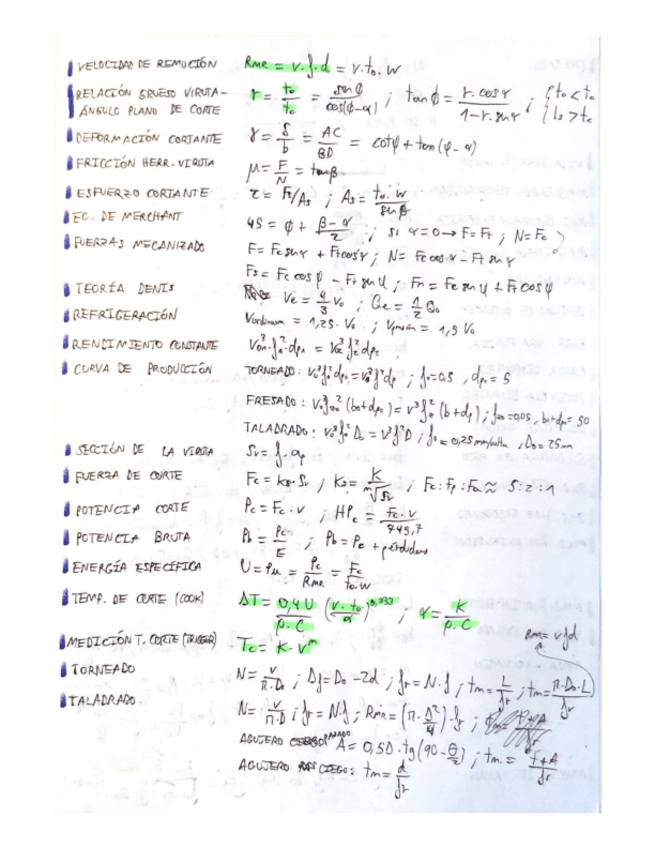 VELOCIDAD DE REMOCIÓN RMR = v.f.d = v.to.w
RELACIÓN GRUESO VIRUTA- r = to/tc = sen ϕ/cos(ϕ-α) ; tan ϕ = r.cos γ/1-r.sen γ ; { to < tc
ÁNGULO PLANO DE CORTE ls > tc
DEFORMACIÓN CORTANTE γ = δ/b = AC/BD = cotφ + tan(φ - α)
FRICCIÓN HERR-VIRUTA μ = F/N = tan β
ESFUERZO CORTANTE τ = Fs/As ; As = to.w/sen ϕ
EC. DE MERCHANT 45 = ϕ + β-α/2 ; si α=0 → F=Ft ; N=Fc
FUERZAS MECANIZADO F = Fc sen γ + Ft cos γ ; N = Fc cos γ - Ft sen γ
Fs = Fc cos φ - Ft sen φ ; Fn = Fc sen φ + Ft cos φ
TEORÍA DENIS Ve = 4/3 Vo ; Qe = 1/2 Qo
REFRIGERACIÓN Vordinam = 1,25.Vo ; = 1,9 Vo
RENDIMIENTO CONSTANTE
CURVA DE PRODUCCIÓN TORNEADO: ; fo=0,5 , dpo = 5
FRESADO : ; fzo=0,05 , bo+dpo = 50
TALADRADO: ; fo = 0,25 mm/vuelta , Do = 25mm
SECCIÓN DE LA VIRUTA Sv = f.ap
FUERZA DE CORTE Fc = ks.Sv ; Ks = K/m√Sv ; Fc:Ft:Fa ≈ 5:2:1
POTENCIA CORTE Pc = Fc.v ; HPc = Fc.v/745,7
POTENCIA BRUTA Pb = Pc/E ; Pb = Pc + pérdidas
ENERGÍA ESPECÍFICA U = Pu = Pc/RMR = Fc/to.w
TEMP. DE CORTE (COOK) ΔT = 0,4U/ρ.C (v.to/α)^0,333 ; α = K/ρ.C
RMR = vfd
MEDICIÓN T. CORTE (TRIGGER) Tc = K.v^m
TORNEADO N = v/π.Do ; Df = Do - 2d ; fr = N.f ; tm = L/fr ; tm = π.Do.L/fv
TALADRADO N = v/π.D ; fr = N.f ; RMR = (π.D²/4).fr ;
AGUJERO PASADO A = 0,5D.tg(90 - θ/2) ; tm = t+A/fr
AGUJERO CIEGO: tm = d/fr